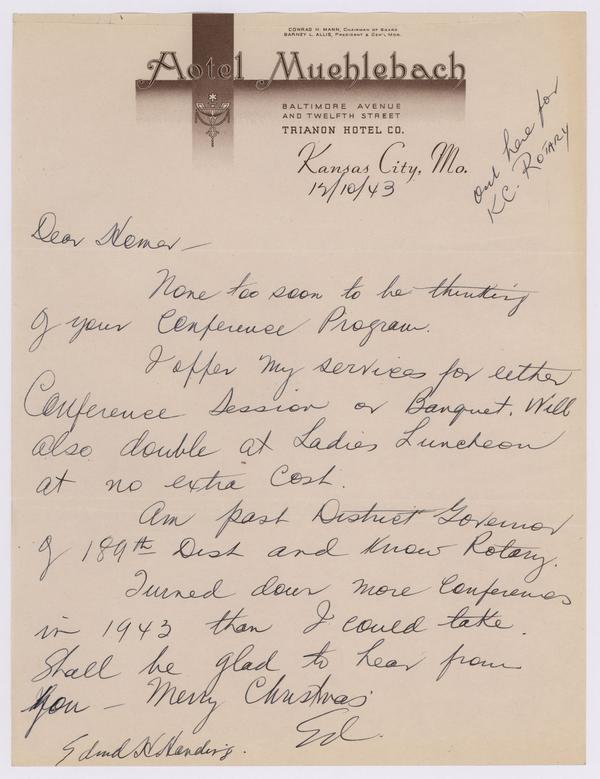 CONRAD H. MANN, CHAIRMAN OF BOARD
BARNEY L. ALLIS, PRESIDENT & GEN'L MGR.
Hotel Muehlebach
BALTIMORE AVENUE
AND TWELFTH STREET
TRIANON HOTEL CO.
Kansas City, Mo.
12/10/43
out here for
K.C. ROTARY
Dear Homer —
None too soon to be thinking
of your Conference Program.
I offer my services for either
Conference Session or Banquet. Will
also double at Ladies Luncheon
at no extra cost.
Am past District Governor
of 189th Dist and know Rotary.
Turned down more Conferences
in 1943 than I could take.
Shall be glad to hear from
you — Merry Christmas
Ed.
H. Harding.